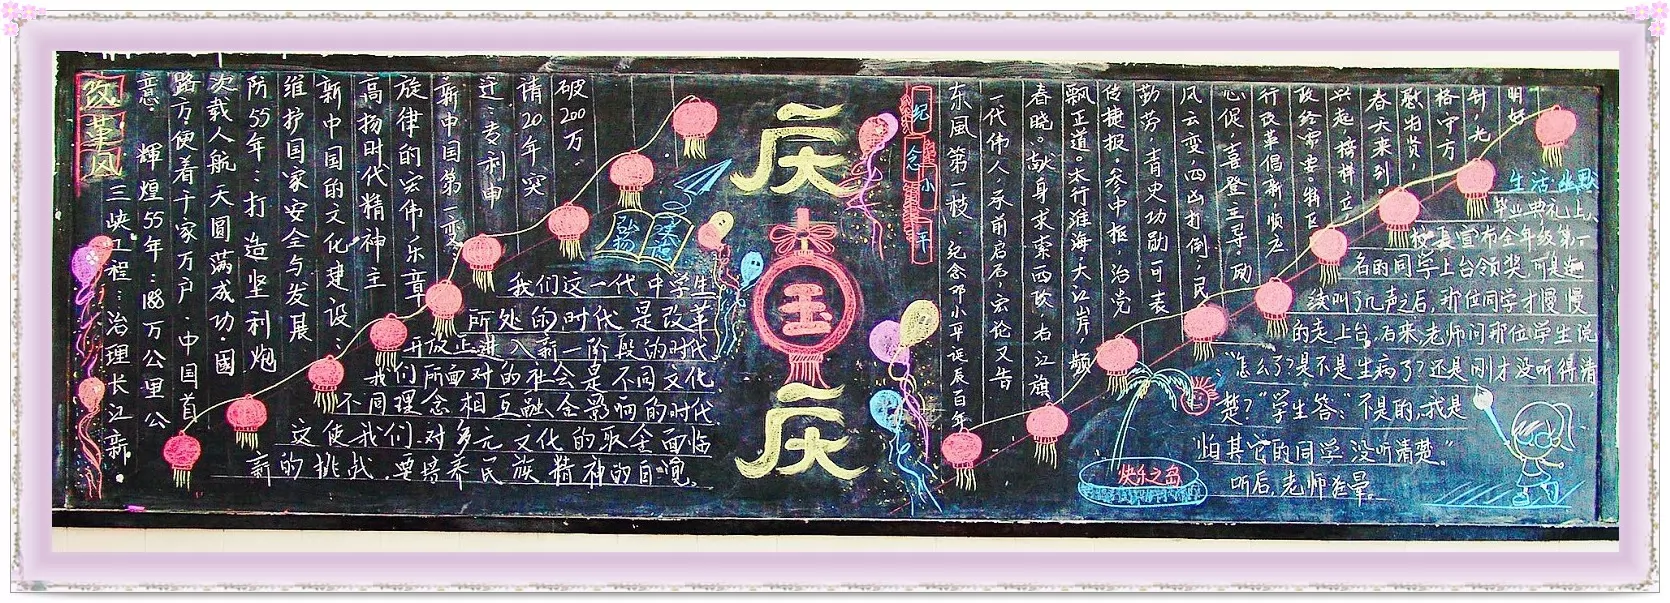 改革风
三峡工程:治理长江新
意.辉煌55年:188万公里公
路方便着千家万户.中国首
次载人航天圆满成功.国
防55年:打造坚利炮
维护国家安全与发展
新中国的文化建设:
高扬时代精神主
旋律的宏伟乐章
新中国第一变
迁专利申
请20年突
破200万
弘扬
我们这一代中学生
所处的时代是改革
开放正进入新一阶段的时代
我们所面对的社会是不同文化
不同理念相互融会影响的时代
这使我们对多元文化的取舍面临
新的挑战.要培养民族精神的自觉
庆国庆
纪念小平
东風第一枝.纪念邓小平诞辰百年
一代伟人.承前启后.宏伦又告
春晓。献身求索西欧.右江旗
飘正道。木行淮海.大江岸.频
传捷报.参中枢.治党
勤劳.青史功勋可表
风云变.四凶打倒,民
心促.喜登主导.励
行改革倡新.顺应
政经需要。特区
兴起.榜样立
春天来到。
慰先贤
格守方
针,光
明好
生活幽默
毕业典礼上,
校长宣布全年级第一
名的同学上台领奖,可是连
续叫了几声之后,那位同学才慢慢
的走上台,后来老师问那位学生说
"怎么了?是不是生病了?还是刚才没听得清
楚?"学生答:"不是的,我是
怕其它的同学没听清楚."
听后,老师在晕。
快乐之岛